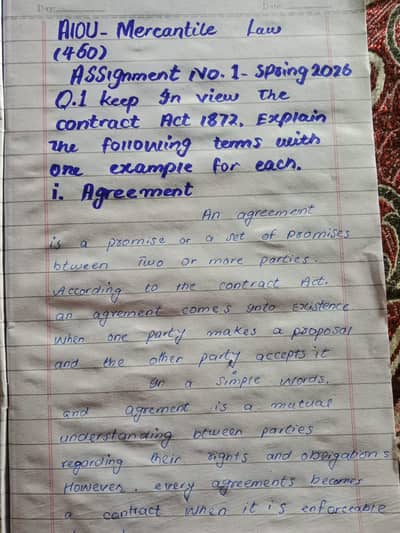 Day: Date:
AIOU- Mercantile Law
(460)
ASSignment No. 1- Spring 2026
Q.1 keep In view The
contract Act 1872. Explain
The following terms with
one example for each.
i. Agreement
An agreement
is a promise or a set of promises
btween Two or more parties.
According to the contract Act.
an agrement comes Into Existence
when one party makes a proposal
and the other party accepts it
In a simple words,
and agrement is a mutual
understanding btween parties
regarding their rights and obligations
However, every agreements becomes
a contract when it is enforceable